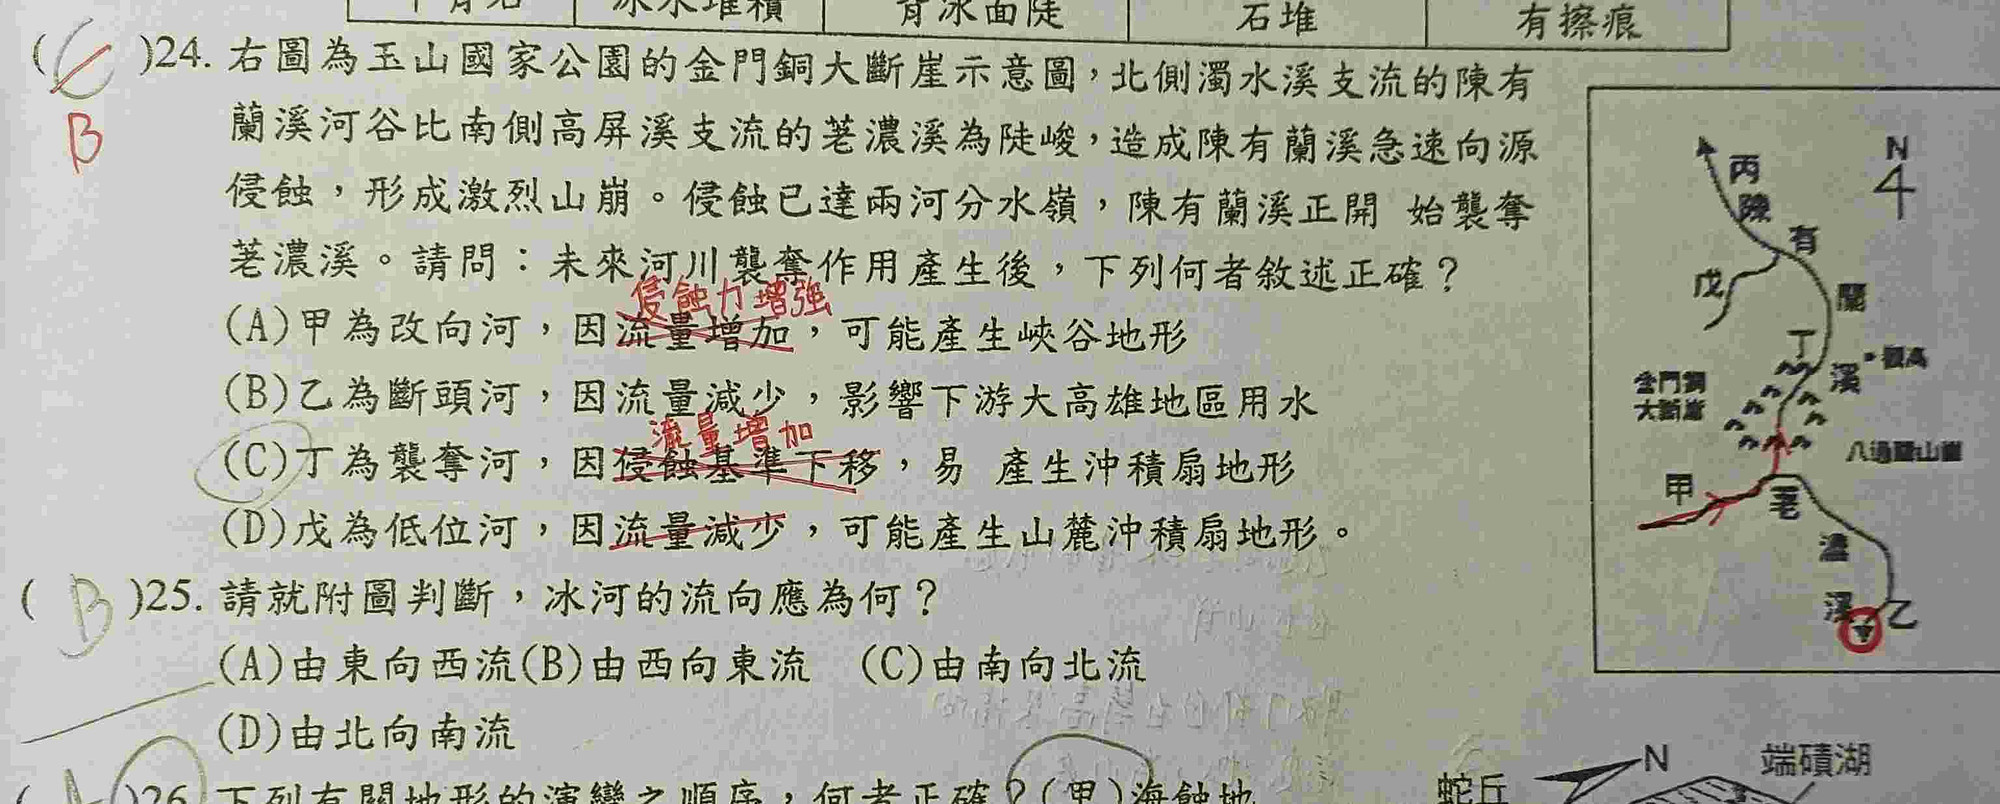 冰水堆積
背冰面陡
石堆
有擦痕
(C)24. 右圖為玉山國家公園的金門銅大斷崖示意圖，北側濁水溪支流的陳有
B
蘭溪河谷比南側高屏溪支流的荖濃溪為陡峻，造成陳有蘭溪急速向源
侵蝕，形成激烈山崩。侵蝕已達兩河分水嶺，陳有蘭溪正開 始襲奪
荖濃溪。請問：未來河川襲奪作用產生後，下列何者敘述正確？
侵蝕力增強
(A)甲為改向河，因流量增加，可能產生峽谷地形
(B)乙為斷頭河，因流量減少，影響下游大高雄地區用水
流量增加
(C)丁為襲奪河，因侵蝕基準下移，易 產生沖積扇地形
(D)戊為低位河，因流量減少，可能產生山麓沖積扇地形。
(B)25. 請就附圖判斷，冰河的流向應為何？
(A)由東向西流(B)由西向東流 (C)由南向北流
(D)由北向南流
)26. 下列有關地形的演變之順序，何者正確？(甲)海蝕地
N
丙
陳
有
戊
蘭
丁
溪
觀高
金門銅
大斷崖
八通關山
甲
荖
濃
溪
乙
N
端磧湖
蛇丘